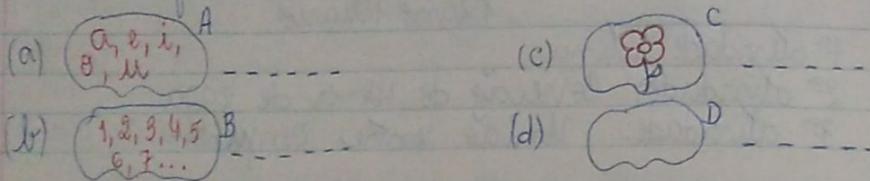 (a) a, e, i, A
o, u ------
(b) 1, 2, 3, 4, 5 B
6, 7... ------
(c) C ------
(d) D ------